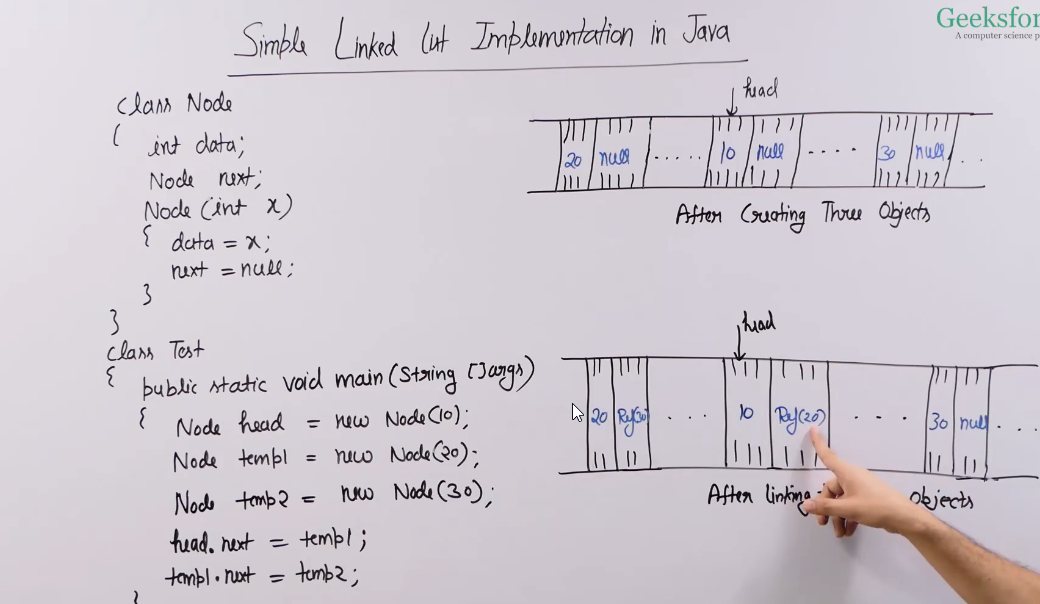 Geeksfor
A computer science p
Simple Linked List Implementation in Java
class Node
{
int data;
Node next;
Node (int x)
{ data = x;
next = null;
}
}
class Test
{ public static void main(String []args)
{ Node head = new Node(10);
Node temp1 = new Node(20);
Node temp2 = new Node(30);
head.next = temp1;
temp1.next = temp2;
}
head
20 null ..... 10 null .... 30 null ..
After Creating Three Objects
head
20 Ref(30) .... 10 Ref(20) .... 30 null ...
After linking Objects